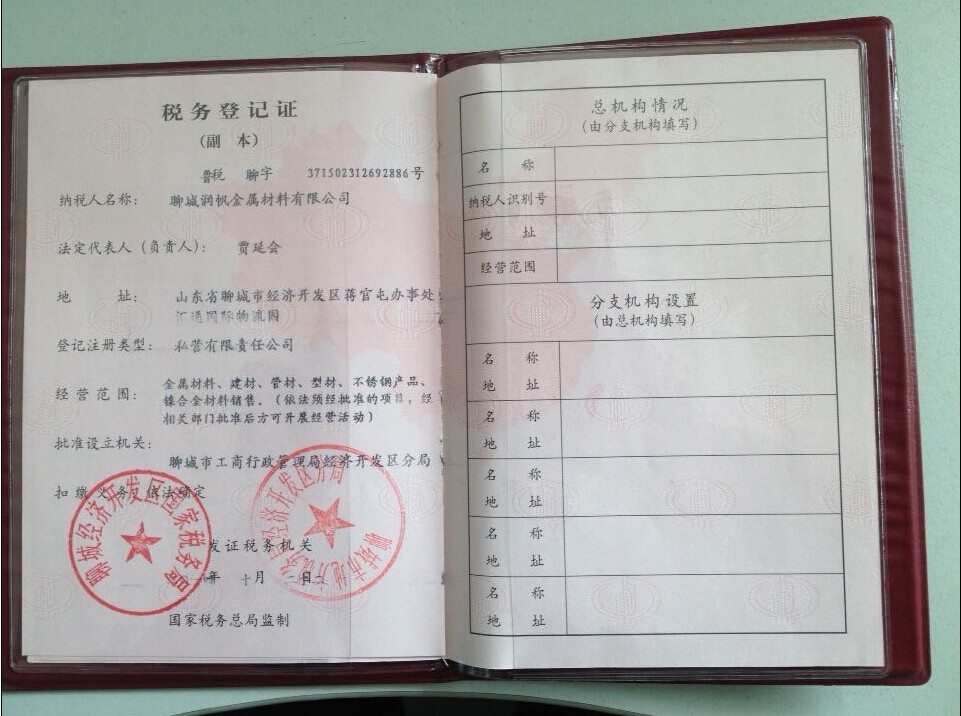 税务登记证
(副 本)
鲁税 聊字 371502312692886号
纳税人名称: 聊城润帆金属材料有限公司
法定代表人(负责人): 贾延会
地 址: 山东省聊城市经济开发区蒋官屯办事处
汇通国际物流园
登记注册类型: 私营有限责任公司
经营范围: 金属材料、建材、管材、型材、不锈钢产品、
镍合金材料销售。(依法须经批准的项目,经
相关部门批准后方可开展经营活动)
批准设立机关:
聊城市工商行政管理局经济开发区分局
扣缴义务: 依法确定
聊城经济开发区国家税务局
发证税务机关
年 十月 二日
国家税务总局监制
总机构情况
(由分支机构填写)
名 称
纳税人识别号
地 址
经营范围
分支机构设置
(由总机构填写)
名 称
地 址
名 称
地 址
名 称
地 址
名 称
地 址
名 称
地 址